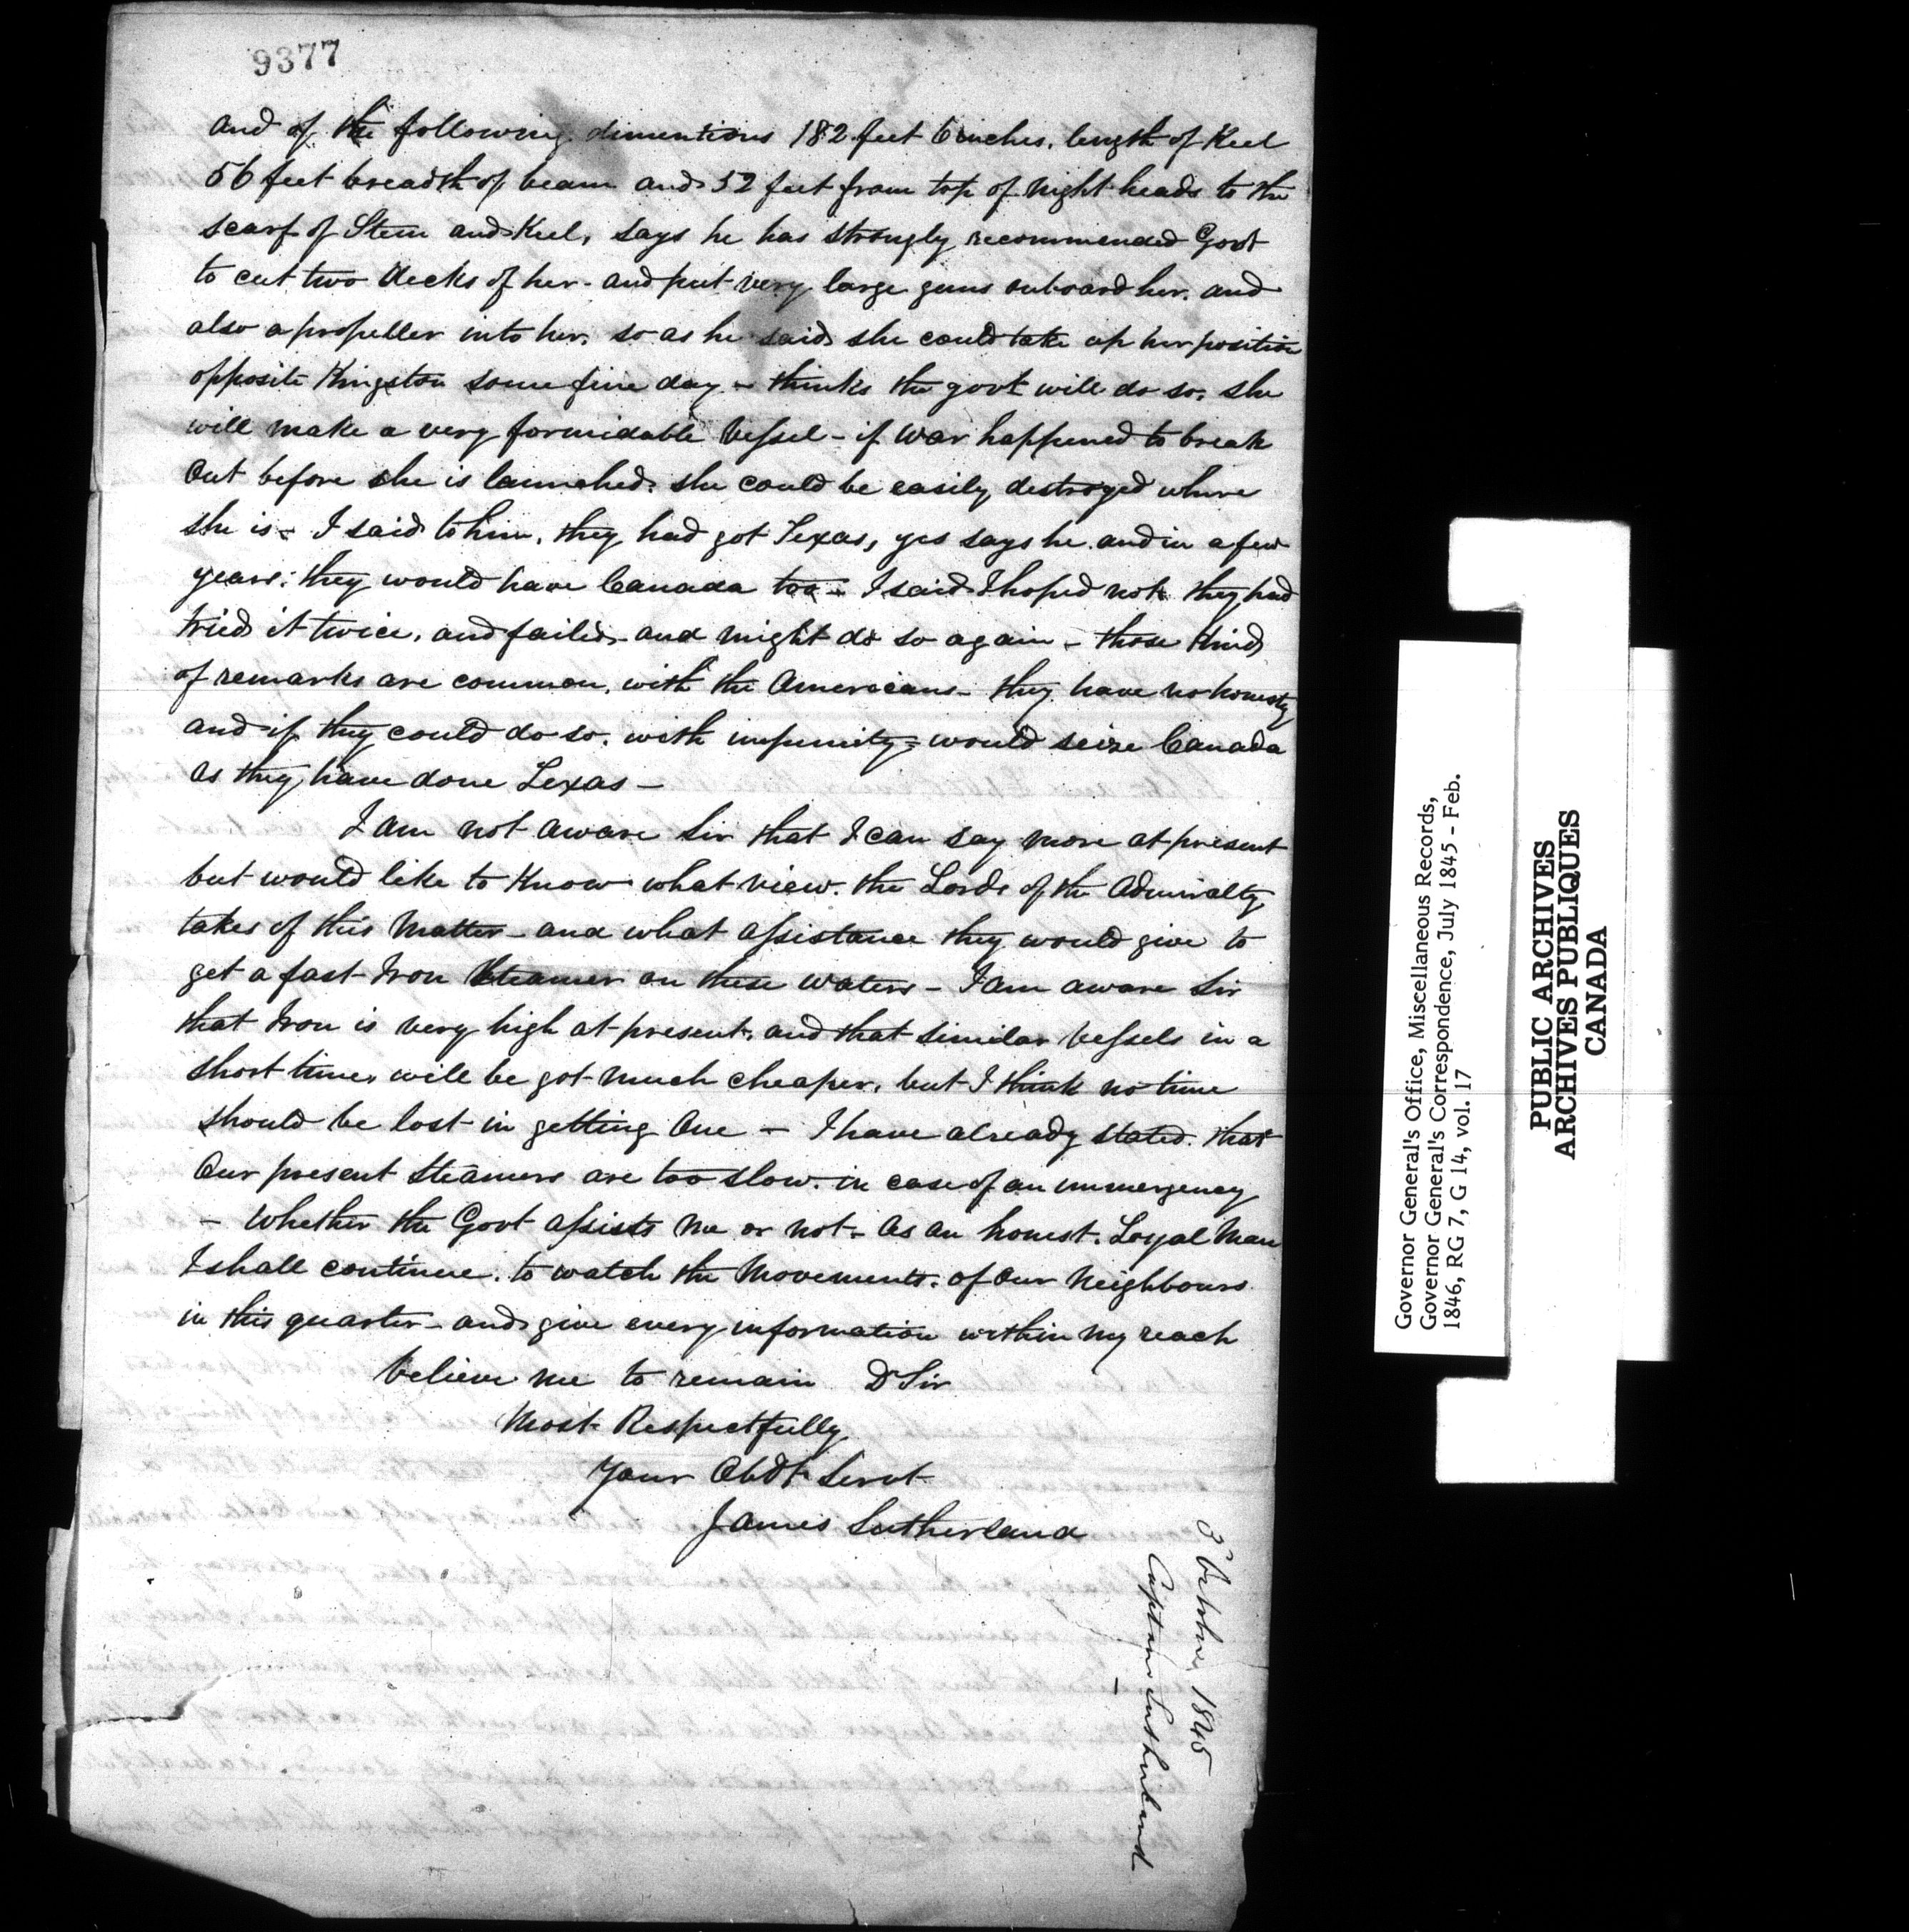 9377
and of the following dimentions 182 feet 6 inches, length of Keel
56 feet breadth of beam and 52 feet from top of Night heads to the
scarf of Stem and Keel, says he has strongly recommended Govt
to cut two decks of her - and put very large guns onboard her, and
also a propeller into her, so as he said she could take up her position
opposite Kingston some fine day - thinks the govt will do so, she
will make a very formidable Vessel - if War happened to break
Out before she is launched, she could be easily destroyed where
she is - I said to him, they had got Texas, yes says he and in a few
years, they would have Canada too - I said I hoped not, they had
tried it twice, and failed - and might do so again - those kind
of remarks are common, with the Americans - they have no honesty
and if they could do so, with impunity, would seize Canada
as they have done Texas -
I am not aware Sir that I can say more at present
but would like to Know what view, the Lords of the Admiralty
takes of this Matter - and what assistance they would give to
get a fast Iron Steamer on these waters - I am aware Sir
that Iron is very high at present, and that similar Vessels in a
short time, will be got much cheaper, but I think no time
should be lost in getting One - I have already stated, that
Our present Steamers are too slow, in case of an immergency
- Whether the Govt assists me or not - as an honest, Loyal Man
I shall continue, to watch the Movements, of our Neighbours
in this quarter - and give every information within my reach
believe me to remain D Sir
Most Respectfully
Your Obdt Servt
James Sutherland
3 October, 1845
Captain Sutherland
Governor General's Office, Miscellaneous Records,
Governor General's Correspondence, July 1845 - Feb.
1846, RG 7, G 14, vol. 17
PUBLIC ARCHIVES
ARCHIVES PUBLIQUES
CANADA